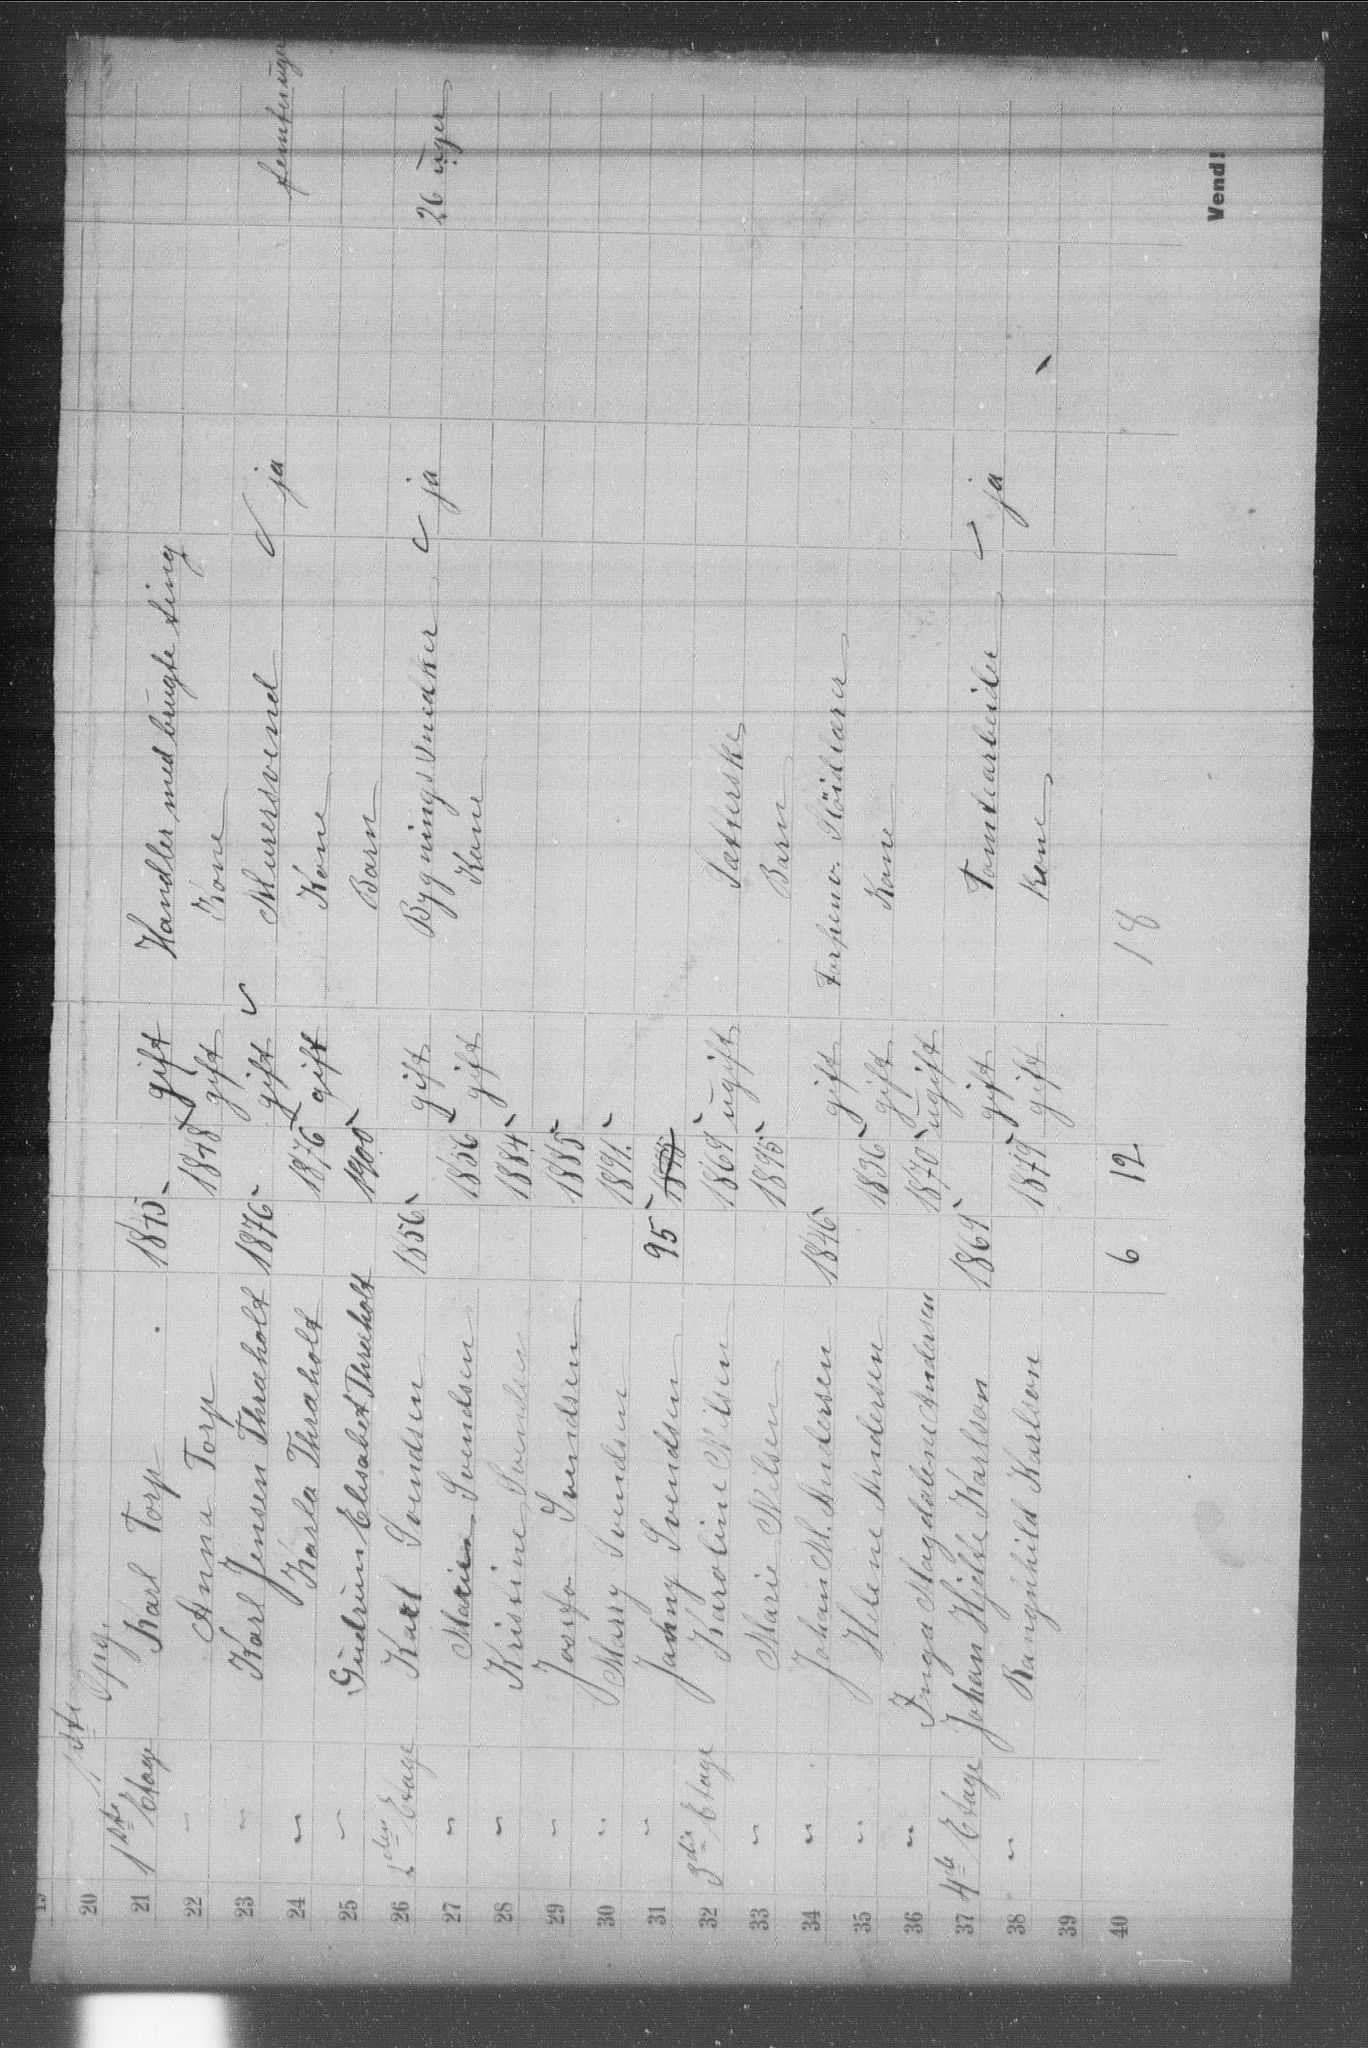 19
20 1ste Opg.
21 1ste Etage Karl Torp 1845 gift Handler med brugte ting
22 " Anna Torp 1848 gift Kone
23 " Karl Jensen Thraholt 1876 gift Murersvend ja
24 " Karla Thraholt 1876 gift Kone
25 " Gudrun Elisabet Thraholt 1900 Barn
26 2den Etage Karl Svendsen 1856 gift Bygningssnedker ja 26 uger
27 " Marie Svendsen 1856 gift Kone
28 " Kristine Svendsen 1884
29 " Josefa Svendsen 1885
30 " Marry Svendsen 1891
31 " Jahny Svendsen 95 1895
32 3die Etage Karoline Nilsen 1869 ugift Sætterske
33 " Marie Nilsen 1895 Barn
34 " Johan M. Andersen 1846 gift Slöidlærer
35 " Helene Andersen 1836 gift Kone
36 " Inga Magdalene Andersen 1870 ugift
37 4de Etage Johan Hjelte Karlson 1869 gift Tomtearbeider ja
38 " Rangnhild Karlson 1879 gift Kone
39
40 6 12 18
Vend!